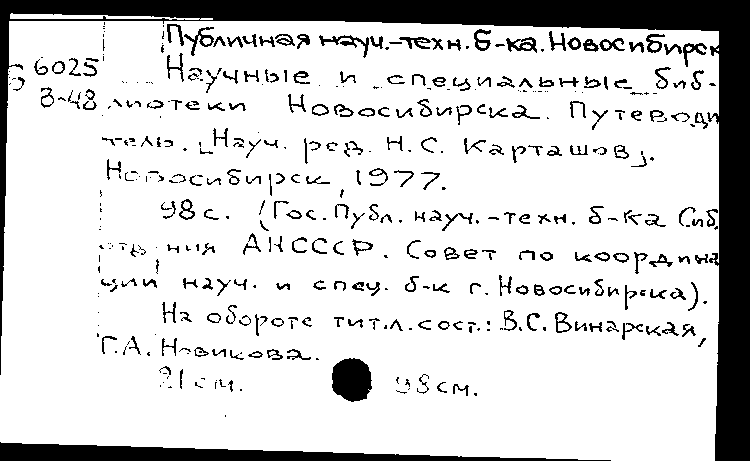 Публичная науч.-техн. б-ка. Новосибирск
Б 6025 Научные и специальные биб-
3-48 лиотеки Новосибирска. Путеводи
тель. [Науч. ред. Н.С. Карташов].
Новосибирск, 1977.
98 с. (Гос. Публ. науч.-техн. б-ка Сиб.
отд-ния АН СССР. Совет по координа
ции науч. и спец. б-к г. Новосибирска).
На обороте тит. л. сост.: В.С. Винарская,
Г.А. Новикова.
21 см. 98 см.